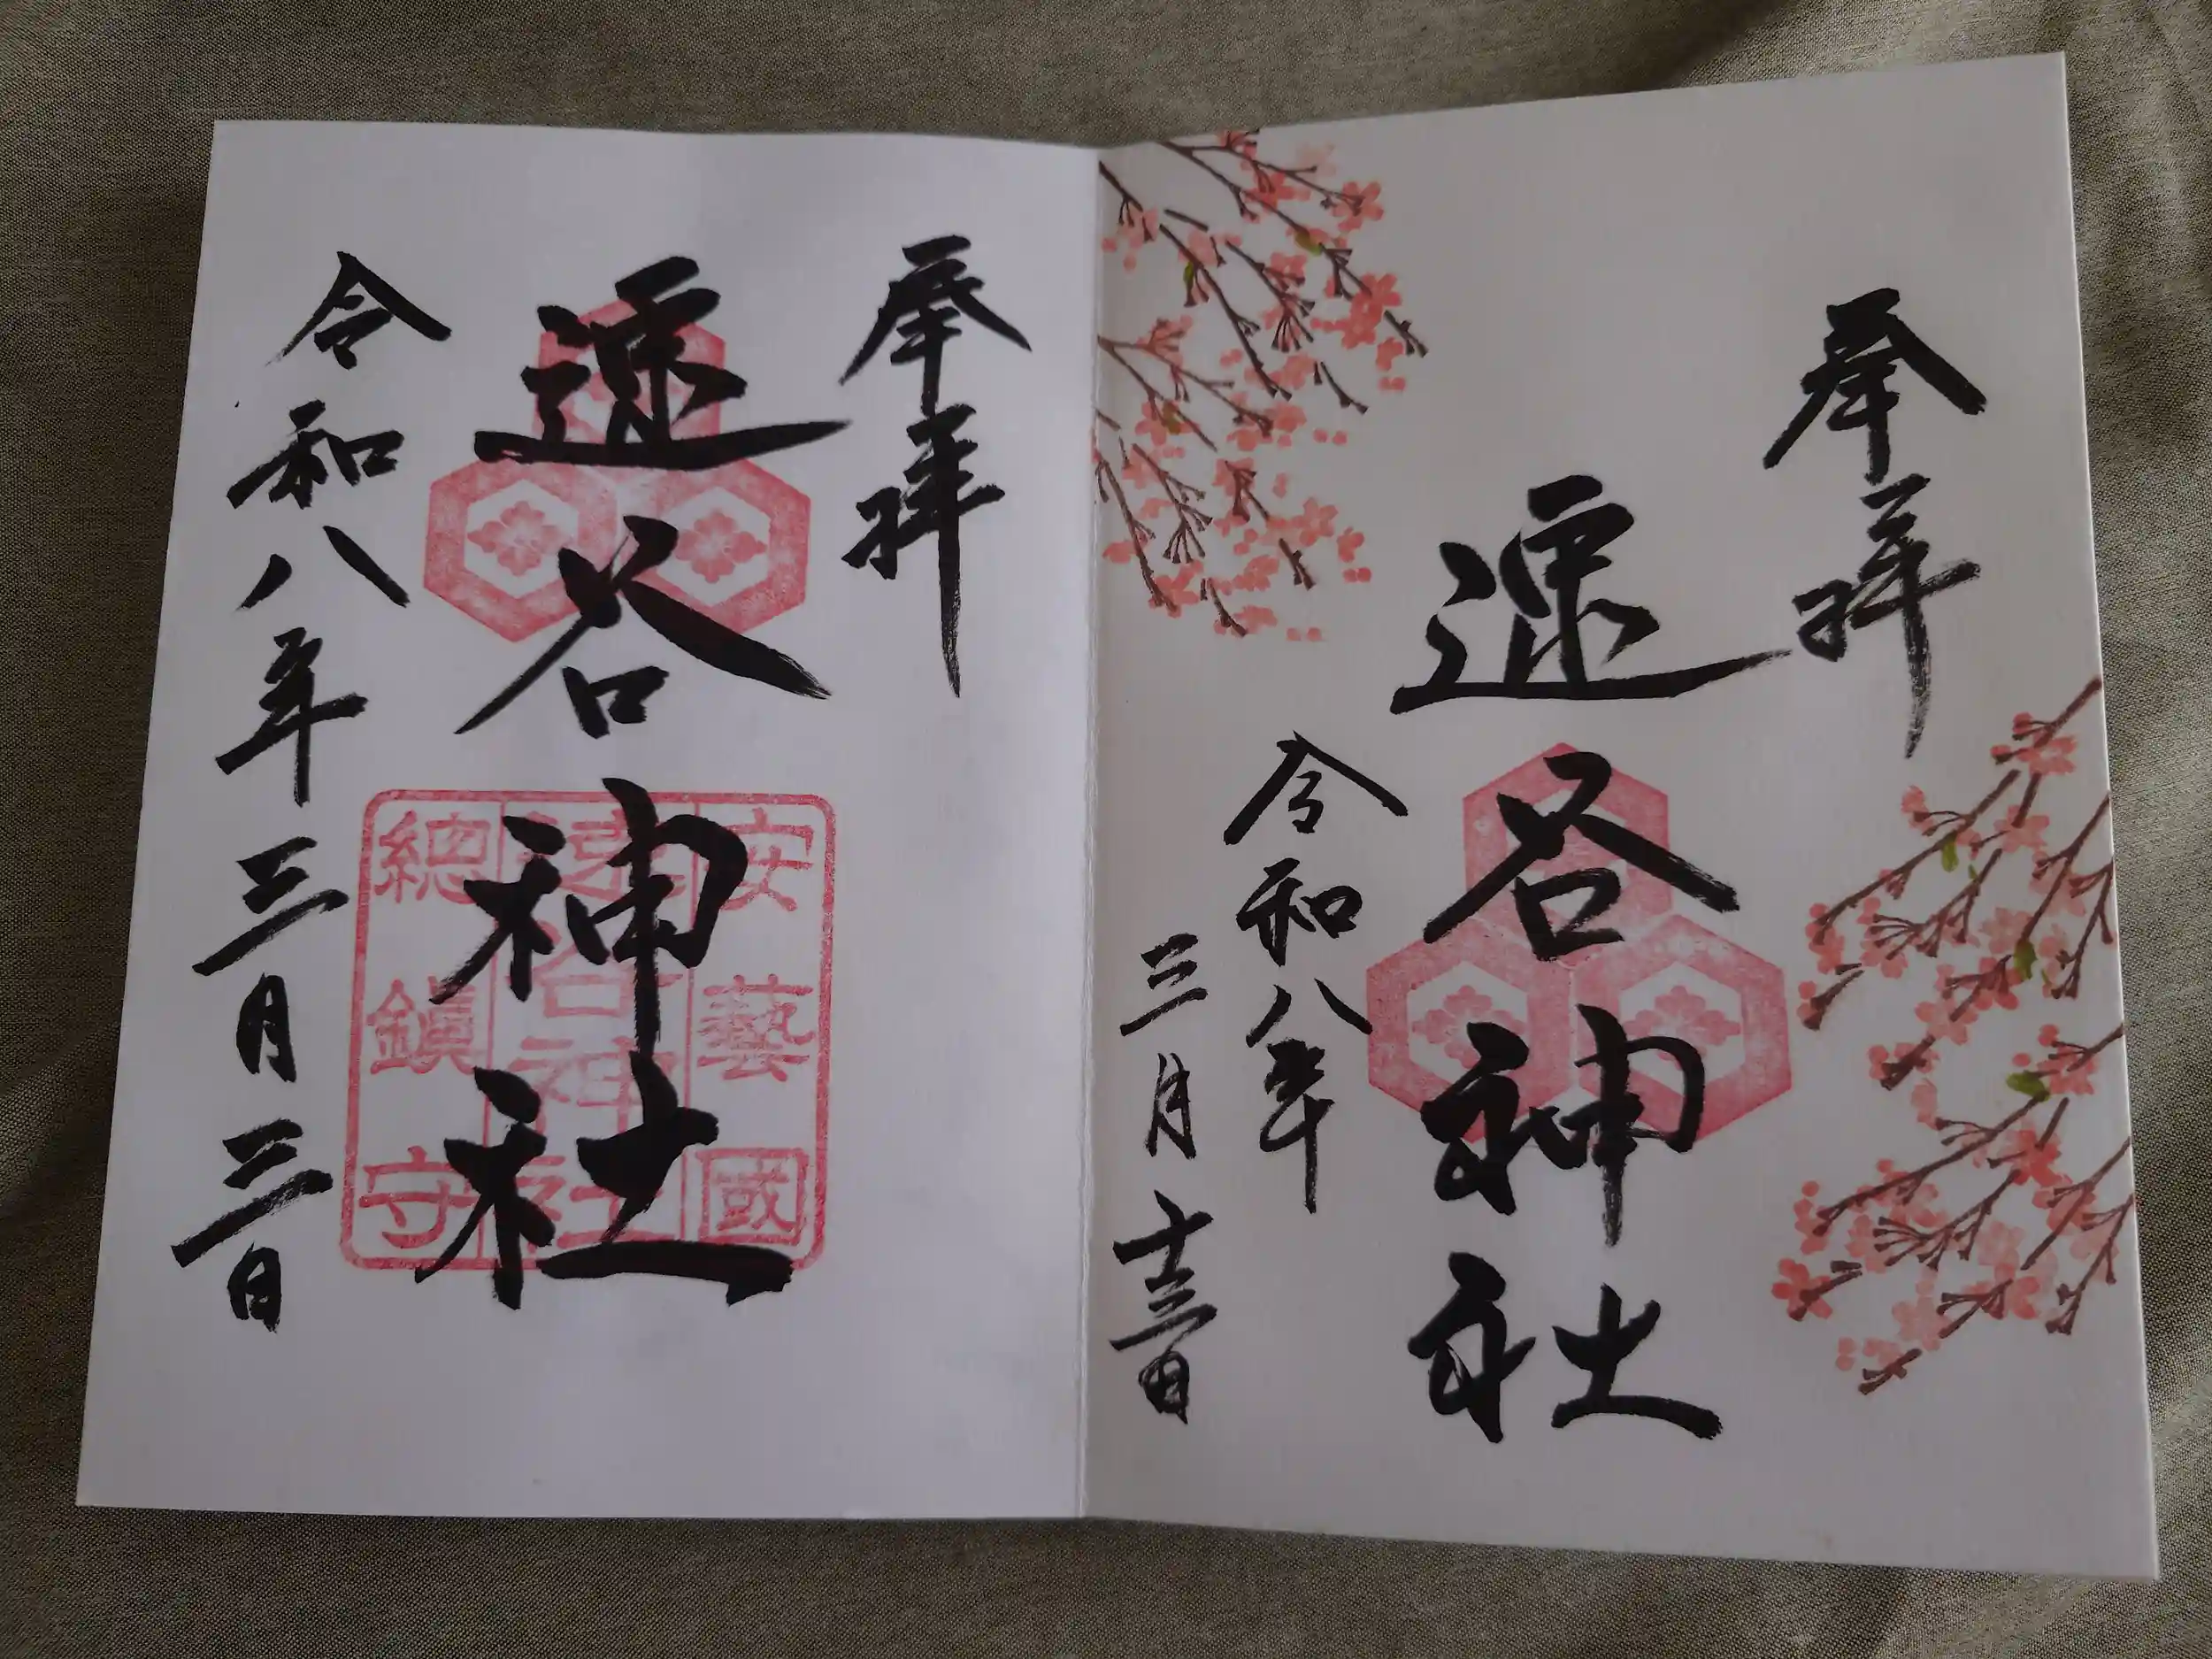 奉拝
速谷神社
令和八年
三月十三日
奉拝
速谷神社
令和八年三月三日
安藝國
速谷神社
總鎭守